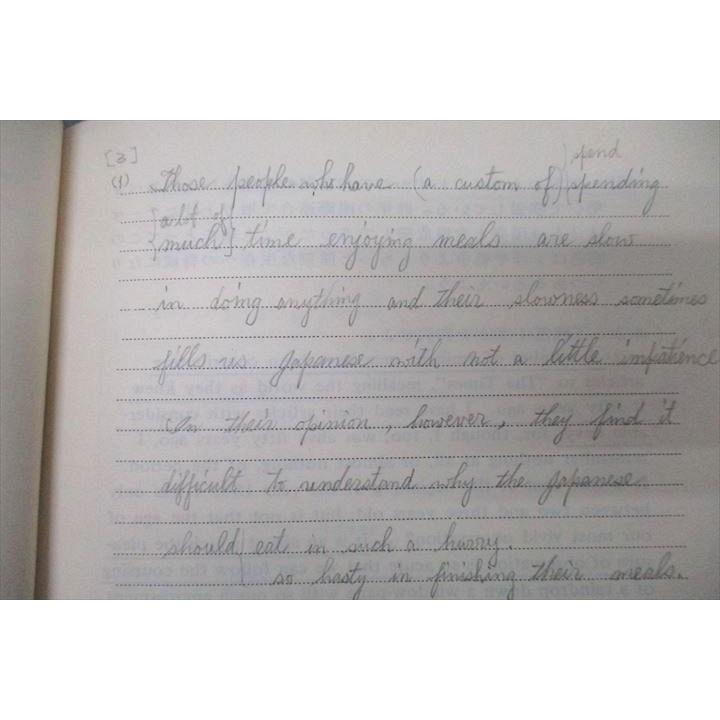 [3]
spend
(1) Those people who have (a custom of) spending
a lot of
[much] time enjoying meals are slow
in doing anything and their slowness sometimes
fills us Japanese with not a little impatience
In their opinion, however, they find it
difficult to understand why the Japanese
should eat in such a hurry.
so hasty in finishing their meals.